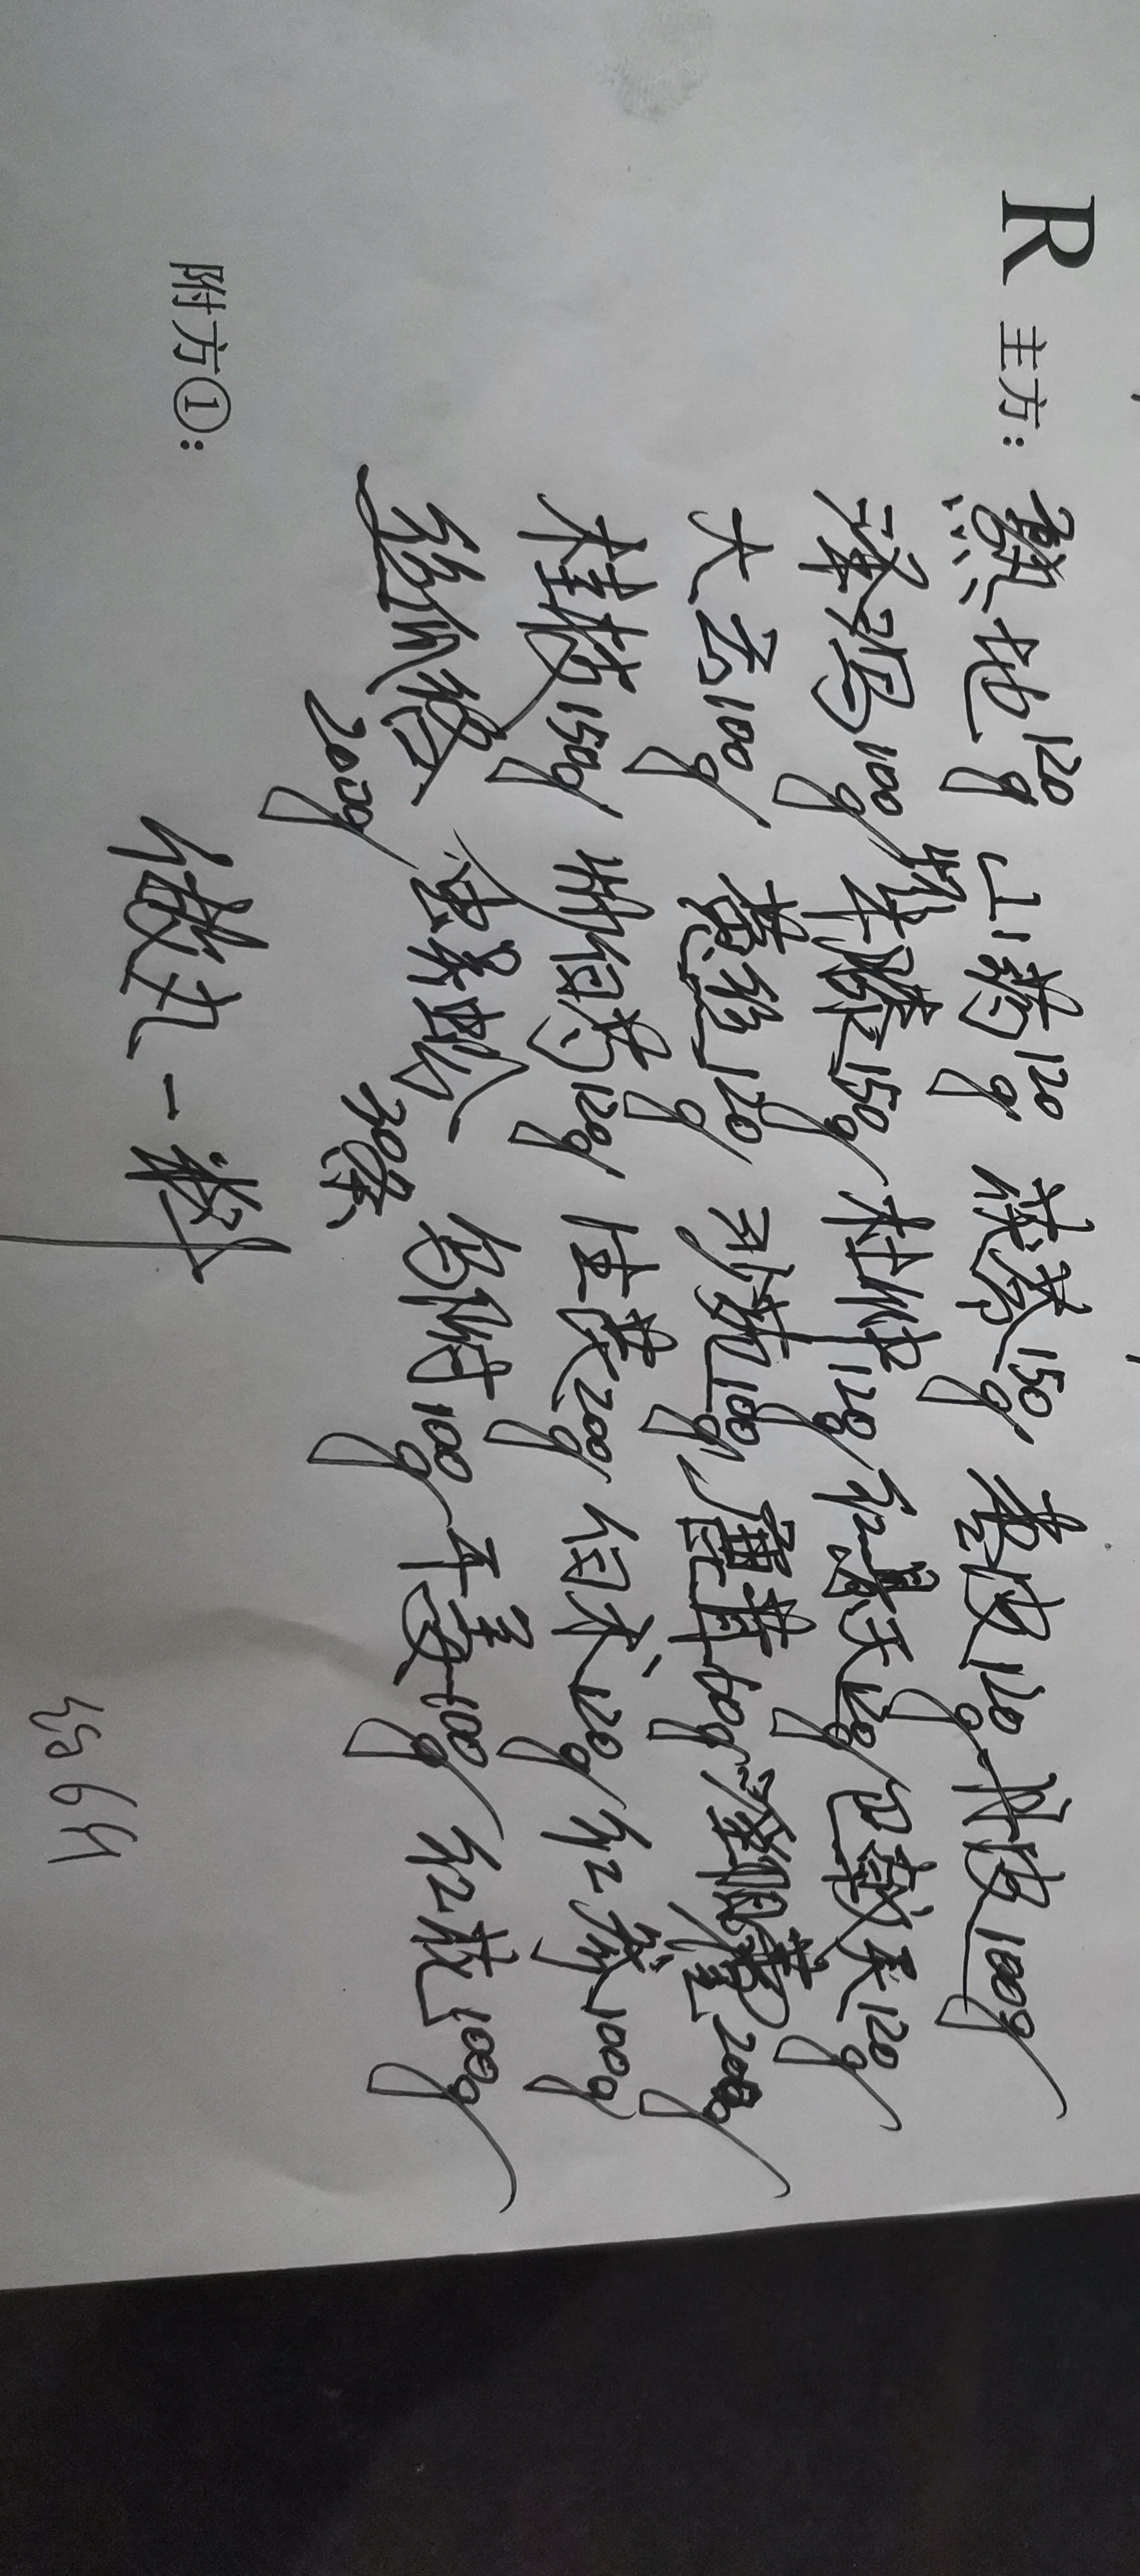 R 主方:
熟地120g 山药120g 茯苓150g 枣皮120g 丹皮100g
泽泻100g 牛膝150g 杜仲120g 红景天120g 巴戟天120g
大云100g 黄
100g 鹿茸60g 淫阳藿200g
桂枝150g 白芍120g 生黄200g 白术120g 红参100g
200g 虫草 蛤蚧 30条 香附100g 干姜100g 红花100g
做丸一料
附方①: